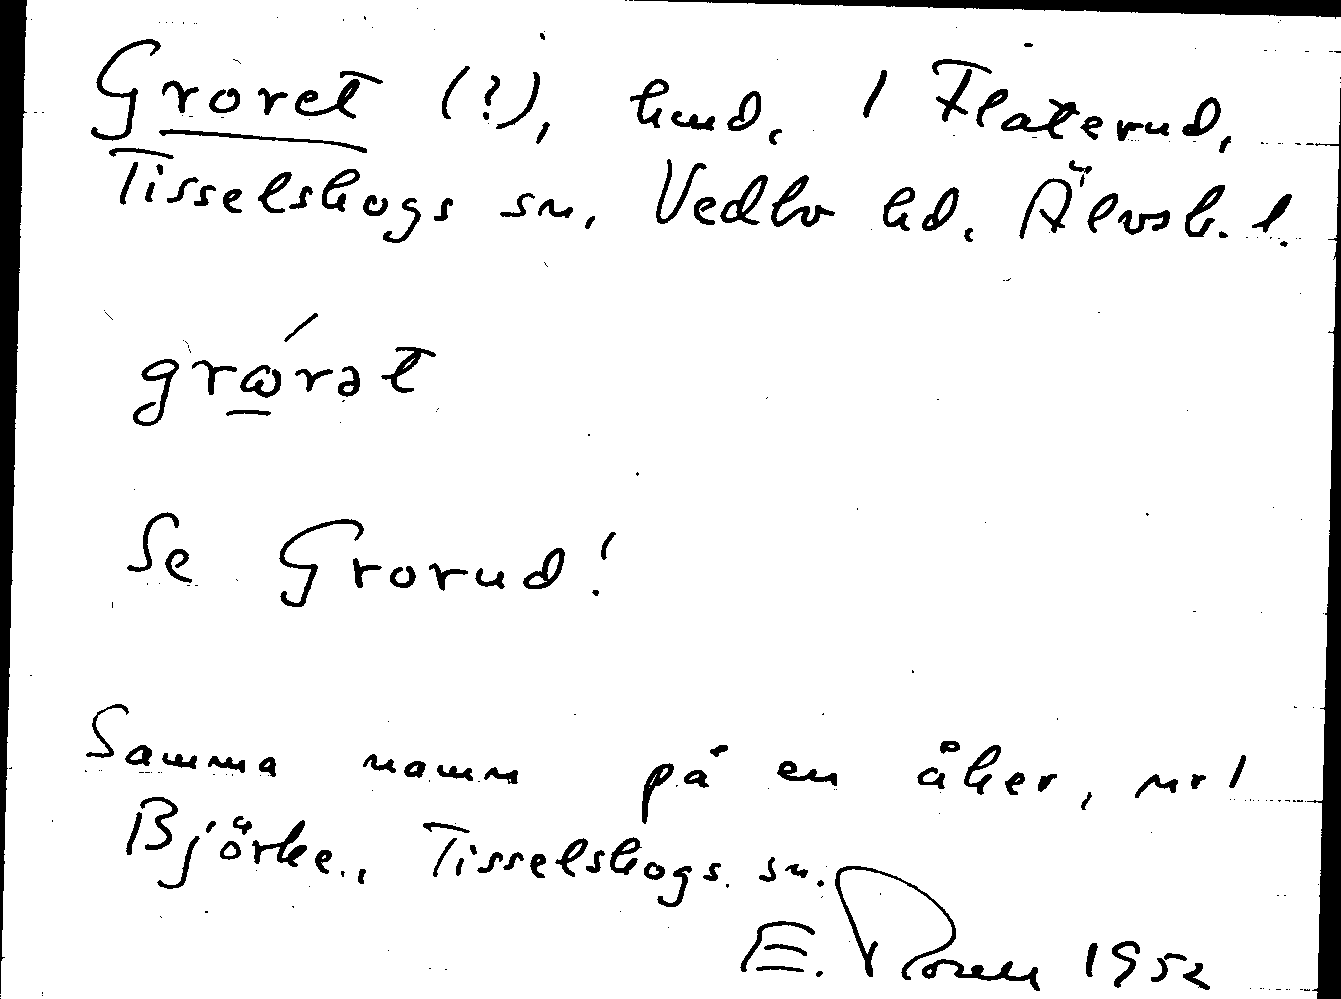 Groret (?), hmd, 1 Flaterud,
Tisselskogs sn, Vedbo hd, Älvsb. l.
grώ̲rət
Se Grorud!
Samma namn på en åker, nr 1
Björke., Tisselskogs. sn.
E. Rosell 1952